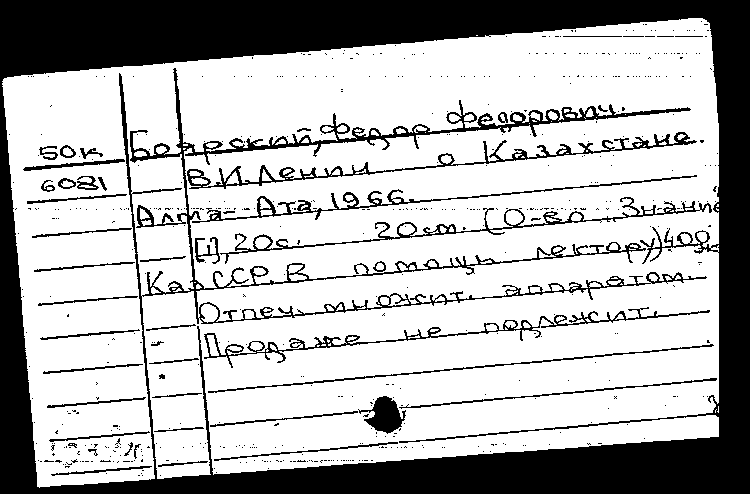 50к Боярский, Федор Федорович.
6081 В.И.Ленин о Казахстане.
Алма-Ата, 1966.
[1], 20с. 20см. (О-во "Знание"
КазССР. В помощь лектору) 400 эк
Отпеч. множит. аппаратом.
Продаже не подлежит.